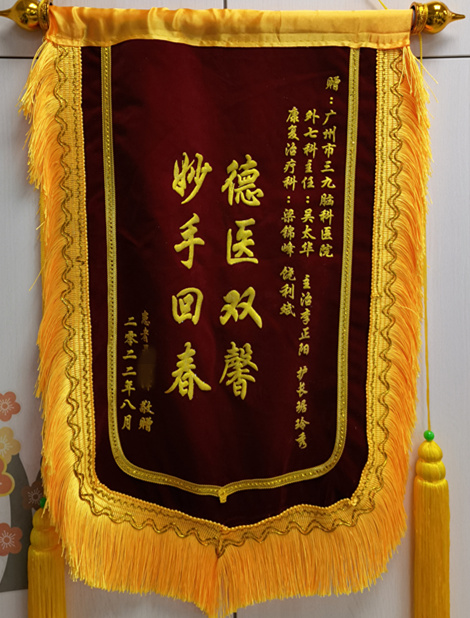 赠：广州市三九脑科医院
外七科主任：吴太华 主治李正阳 护长褚玲秀
康复治疗科：梁锦峰 饶利斌
德医双馨
妙手回春
患者 敬赠
二零二二年八月